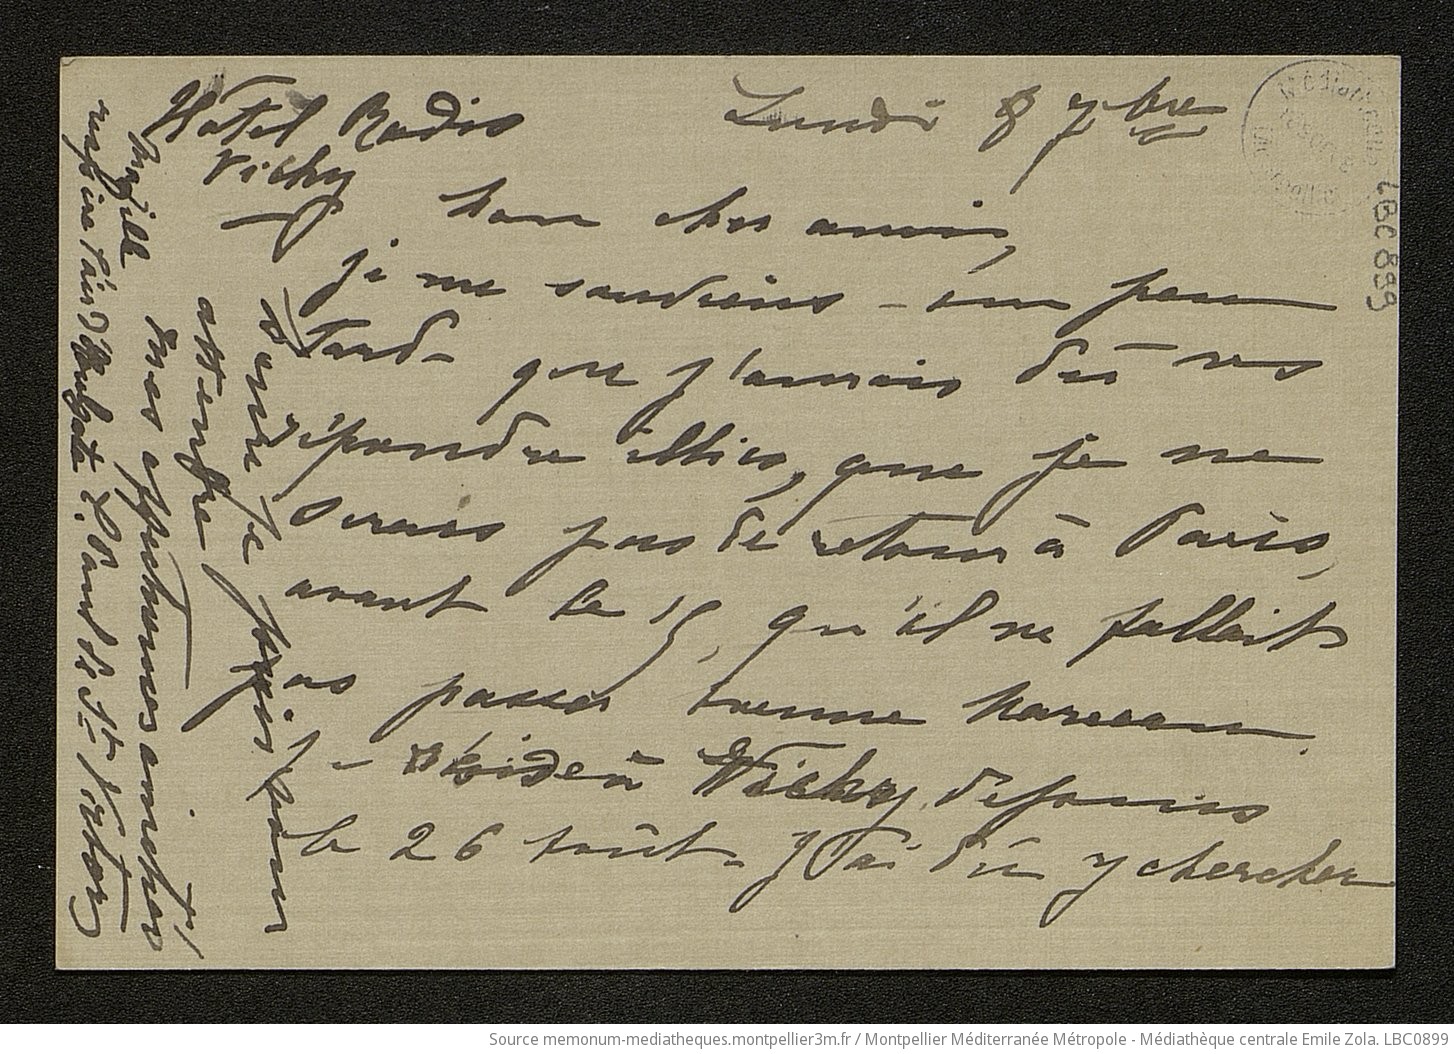 Hotel Radio
Vichy
Lundi 8 7bre
Mon cher ami,
je me souviens - un peu
tard - que j'aurais dû vous
répondre illico, que je ne
serais pas de retour à Paris,
avant le 15, qu'il ne fallait
pas passer
Je réside à Vichy, depuis
le 26 août. J'ai dû y chercher
sante je puis pour
attendre
mes affectueuses amitiés
St Victor
LBC 899
Source memonum-mediatheques.montpellier3m.fr / Montpellier Méditerranée Métropole - Médiathèque centrale Emile Zola. LBC0899